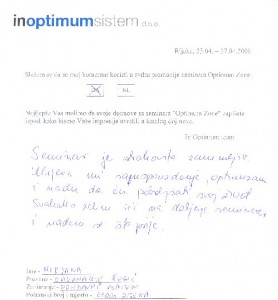 inoptimumsistem d.o.o.
Rijeka, 23.04. – 27.04.2008
Slažem se da se moj komentar koristi u svrhu promocije seminara Optimum Zove
DA NE
Najljepše Vas molimo da svoje dojmove sa seminara "Optimum Zove" zapišete
ispod kako bismo Vaše impresije uvrstili u katalog dojmova.
In Optimum team
Seminar je strahovito zanimljiv.
mi samopouzdanje, optimizam
i nadu da ću poboljšati svoj život
Svakako želim ići na daljnje seminare
i nadam se što prije.
Ime: MIRJANA
Prezime:
Zanimanje:
Poštanski broj i mjesto: RIJEKA